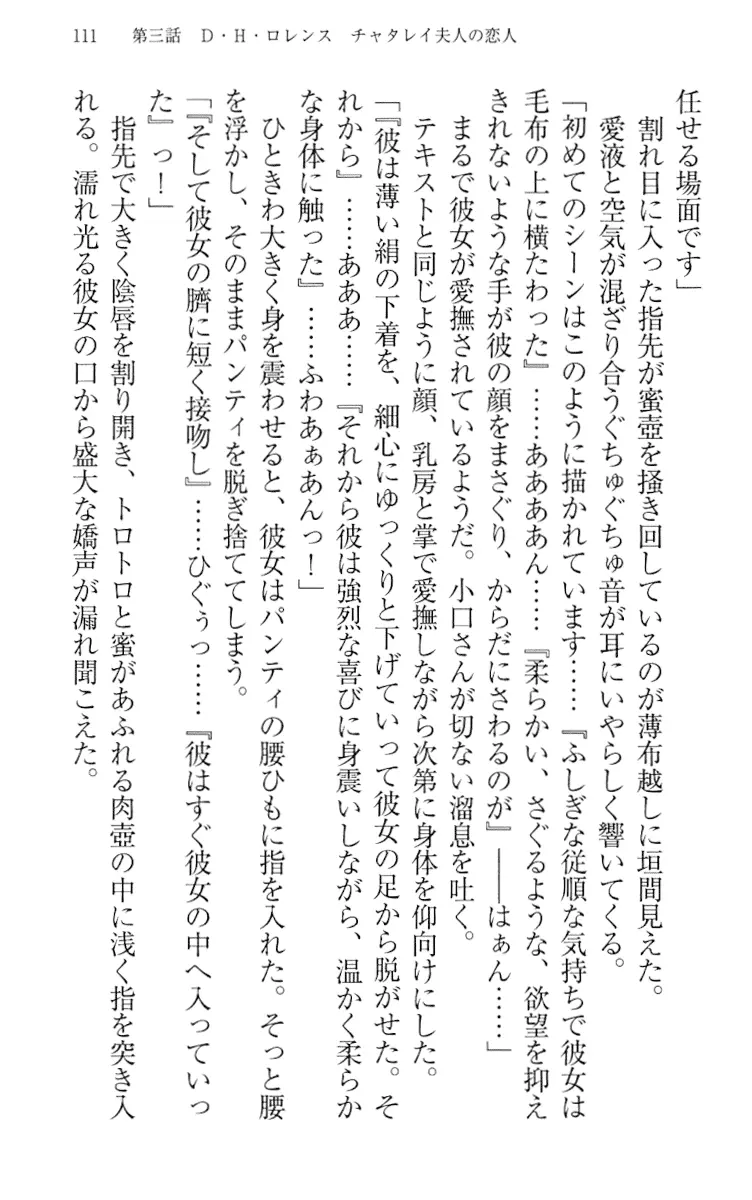 111　第三話　D・H・ロレンス　チャタレイ夫人の恋人
任せる場面です」
　割れ目に入った指先が蜜壺を掻き回しているのが薄布越しに垣間見えた。
　愛液と空気が混ざり合うぐちゅぐちゅ音が耳にいやらしく響いてくる。
「初めてのシーンはこのように描かれています……『ふしぎな従順な気持ちで彼女は
毛布の上に横たわった』……ああああん……『柔らかい、さぐるような、欲望を抑え
きれないような手が彼の顔をまさぐり、からだにさわるのが』――はぁん……」
　まるで彼女が愛撫されているようだ。小口さんが切ない溜息を吐く。
　テキストと同じように顔、乳房と掌で愛撫しながら次第に身体を仰向けにした。
「『彼は薄い絹の下着を、細心にゆっくりと下げていって彼女の足から脱がせた。そ
れから』……あああ……『それから彼は強烈な喜びに身震いしながら、温かく柔らか
な身体に触った』……ふわあぁあんっ！」
　ひときわ大きく身を震わせると、彼女はパンティの腰ひもに指を入れた。そっと腰
を浮かし、そのままパンティを脱ぎ捨ててしまう。
「『そして彼女の臍に短く接吻し』……ひぐぅっ……『彼はすぐ彼女の中へ入っていっ
た』っ！」
　指先で大きく陰唇を割り開き、トロトロと蜜があふれる肉壺の中に浅く指を突き入
れる。濡れ光る彼女の口から盛大な嬌声が漏れ聞こえた。